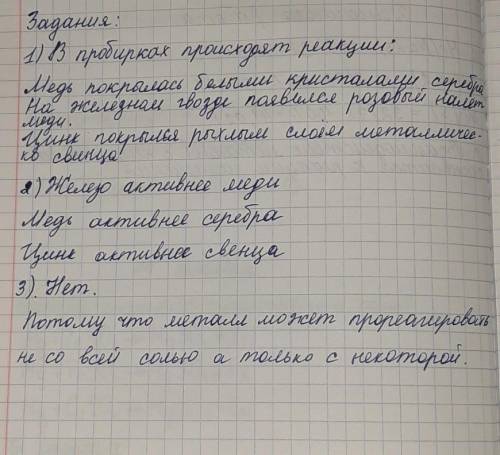 Задания:
1) В пробирках происходят реакции:
Медь покрылась белыми кристалами серебра
На железном гвозде появился розовый налет
меди.
Цинк покрылся рыхлым слоем металличес-
ко свинца
2) Железо активнее меди
Медь активнее серебра
Цинк активнее свенца
3). Нет.
Потому что металл может прореагировать
не со всей солью а только с некоторой.